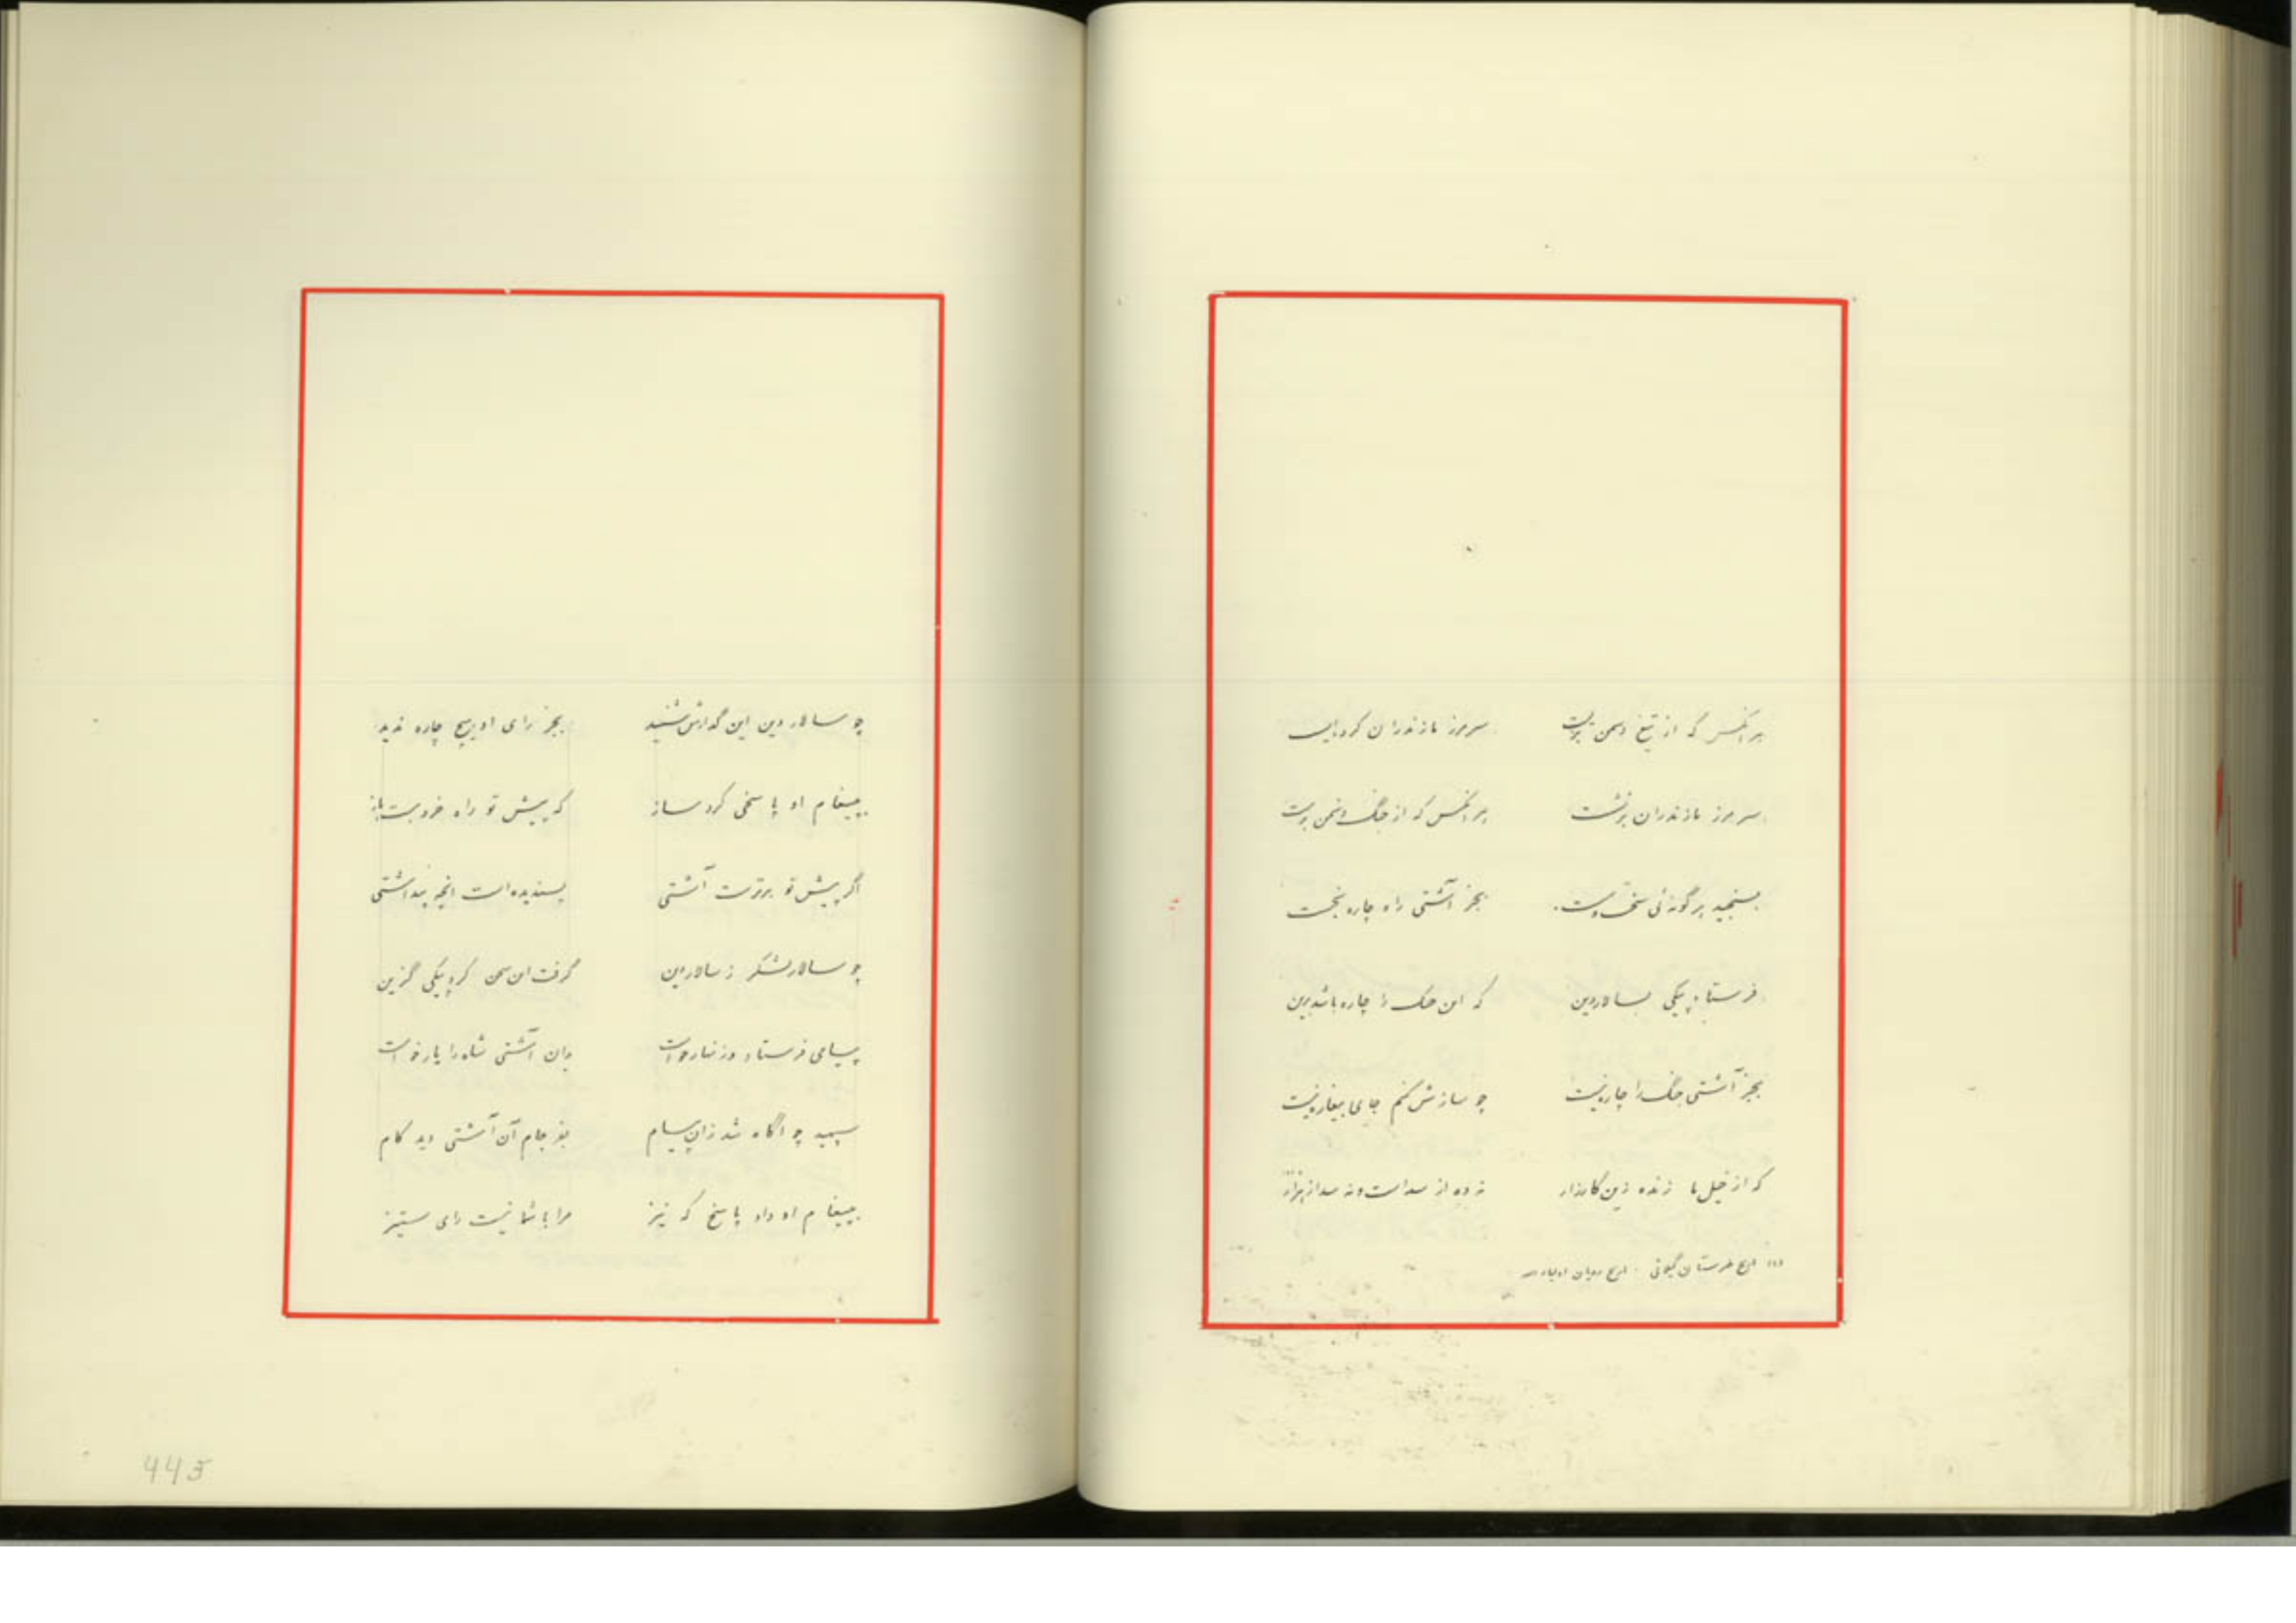 هر آنکس که از تیغ دشمن برست سر مرز مازندران کرد
سر مرز مازندران برنشست هر آنکس که از جنگ دشمن برست
بسنجید هر گونه‌ئی سخت و سست بجز آشتی راه چاره نجست
فرستاد پیکی بسالار دین که این جنگ را چاره باشد برین
بجز آشتی جنگ را چاره نیست چو سازش کنم جای بیغاره نیست
که از خیل ما زنده زین کارزار نه ده از صد است و نه صد از هزار
تاریخ طبرستان تاریخ رویان اولیاء الله
چو سالار دین این گذارش شنید بجز رای او هیچ چاره ندید
بپیغام او پاسخی کرد ساز که پیش تو راه خرد هست باز
اگر پیش تو برتر است آشتی پسندیده است آنچه پنداشتی
چو سالار لشکر ز سالار دین گرفت این سخن کرد پیکی گزین
پیامی فرستاد و زنهار خواست بدان آشتی شاه را یار خواست
سپهبد چو آگاه شد زان پیام بفرجام آن آشتی دید کام
بپیغام او داد پاسخ که نیز مرا با شما نیست رای ستیز
445